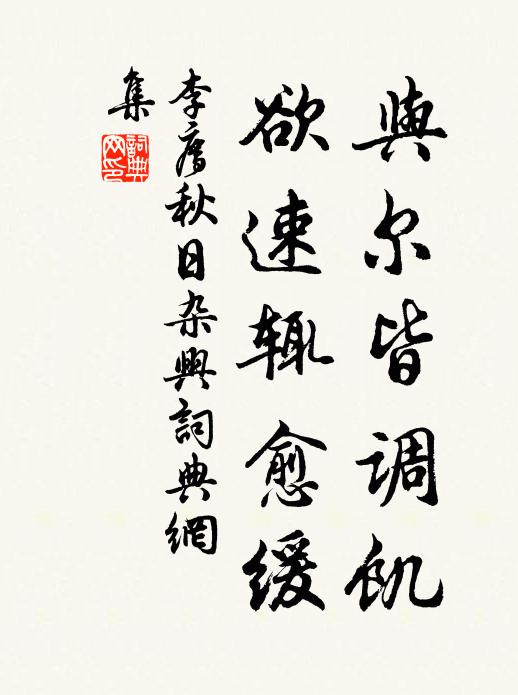 與尔皆调飢
欲速辄愈缓
李廌秋日杂興詞典網
集
詞典
网印